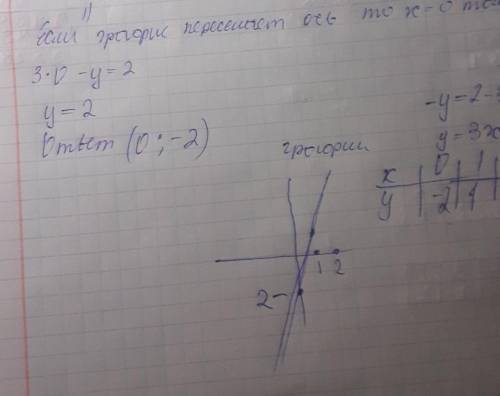 "
Если график пересекает ось то x=0
3·0 -y=2
y=2
Ответ (0 ; -2)
-y=2-
y=3x
график
x | 0 | 1
y | -2 | 1
1 2
2-